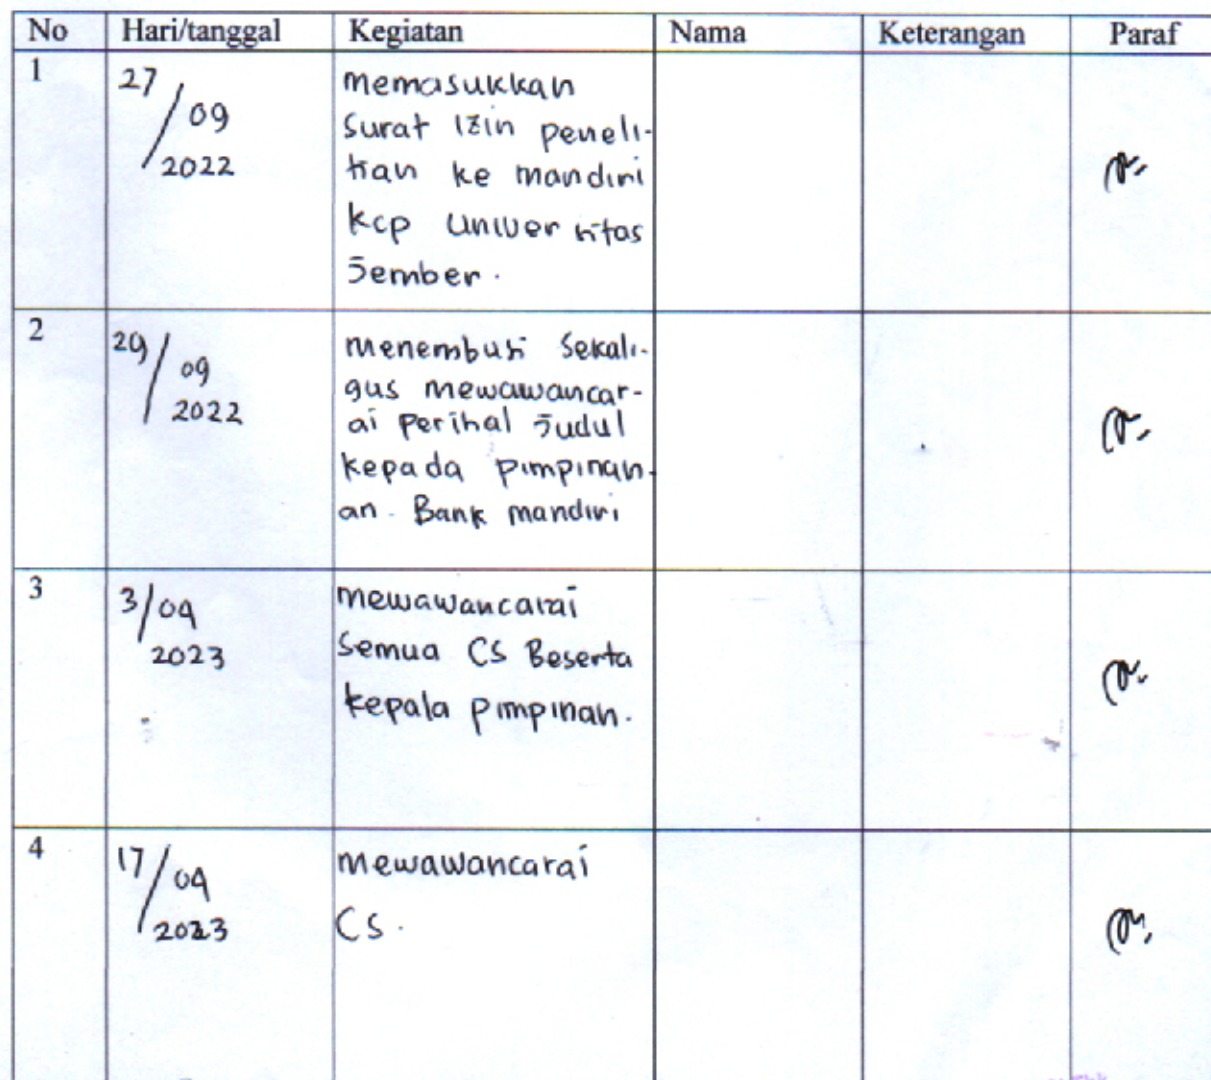 No Hari/tanggal Kegiatan Nama Keterangan Paraf
1 27/09 2022 memasukkan
surat izin peneli-
tian ke mandiri
kcp Universitas
Jember.
2 29/09 2022 menembusi sekali-
gus mewawancar-
ai perihal Judul
kepada pimpinan-
an. Bank mandiri
3 3/04 2023 mewawancarai
semua CS Beserta
kepala pimpinan.
4 17/04 2023 mewawancarai
CS.